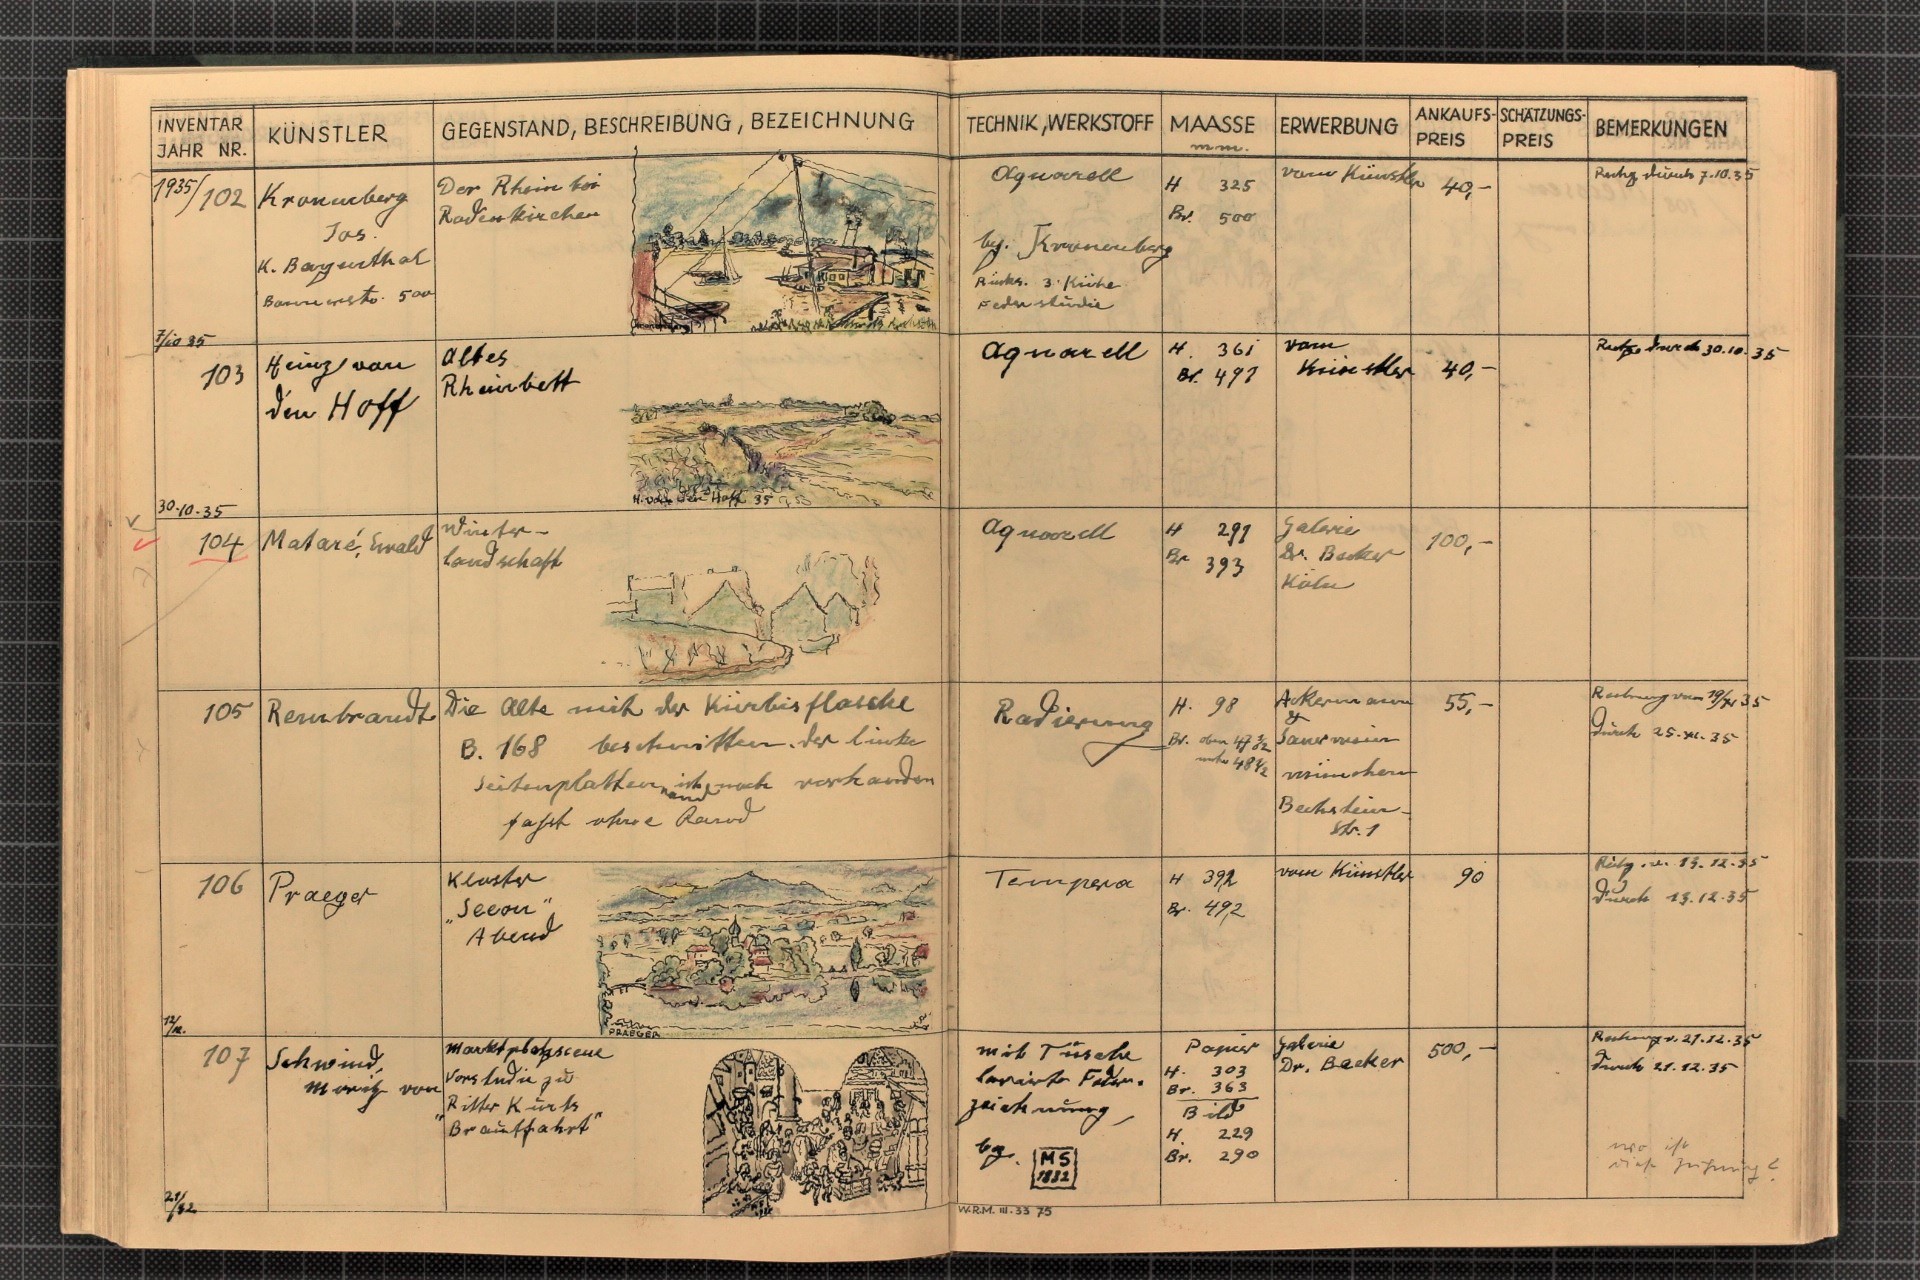 INVENTAR JAHR NR.
KÜNSTLER
GEGENSTAND, BESCHREIBUNG, BEZEICHNUNG
TECHNIK, WERKSTOFF
MAASSE mm.
ERWERBUNG
ANKAUFS-PREIS
SCHÄTZUNGS-PREIS
BEMERKUNGEN
1935/102
Kronenberg
Jos.
K. Bayenthal
Bonnerstr. 500
7/10 35
Der Rhein bei
Rodenkirchen
Kronenberg
Aquarell
bz. Kronenberg
Rücks. 3 Kühe
Federstudie
H 325
Br. 500
vom Künstler
40,-
Rechg durch 7.10.35
103
Heinz van
den Hoff
30.10.35
Altes
Rheinbett
H. van den Hoff 35
Aquarell
H. 361
Br. 491
vom
Künstler
40,-
Rechg durch 30.10.35
104
Mataré, Ewald
Winter-
landschaft
Aquarell
H 291
Br 393
Galerie
Dr. Becker
Köln
100,-
105
Rembrandt
Die Alte mit der Kürbisflasche
B. 168 beschnitten. der linke
Seitenplattenrand ist noch vorhanden
fast ohne Rand
Radierung
H. 98
Br. oben 47 1/2
unten 48 1/2
Ackermann
&
Sauerwein
München
Bechstein-
str. 1
55,-
Rechnung vom 19/XI 35
durch 25.XI.35
106
Praeger
12/12.
Kloster
"Seeon"
Abend
PRAEGER
Tempera
H 392
Br. 492
vom Künstler
90
Rechg. v. 13.12.35
durch 13.12.35
107
Schwind,
Moritz von
21/12
Marktplatzscene
Vorstudie zu
"Ritter Kurts
Brautfahrt"
mit Tusche
lavierte Feder-
zeichnung,
bz. MS
1832
Papier
H. 303
Br. 363
Bild
H. 229
Br. 290
Galerie
Dr. Becker
500,-
Rechnung v. 21.12.35
durch 21.12.35
wo ist
diese Zeichnung?
W.R.M. III. 33 75